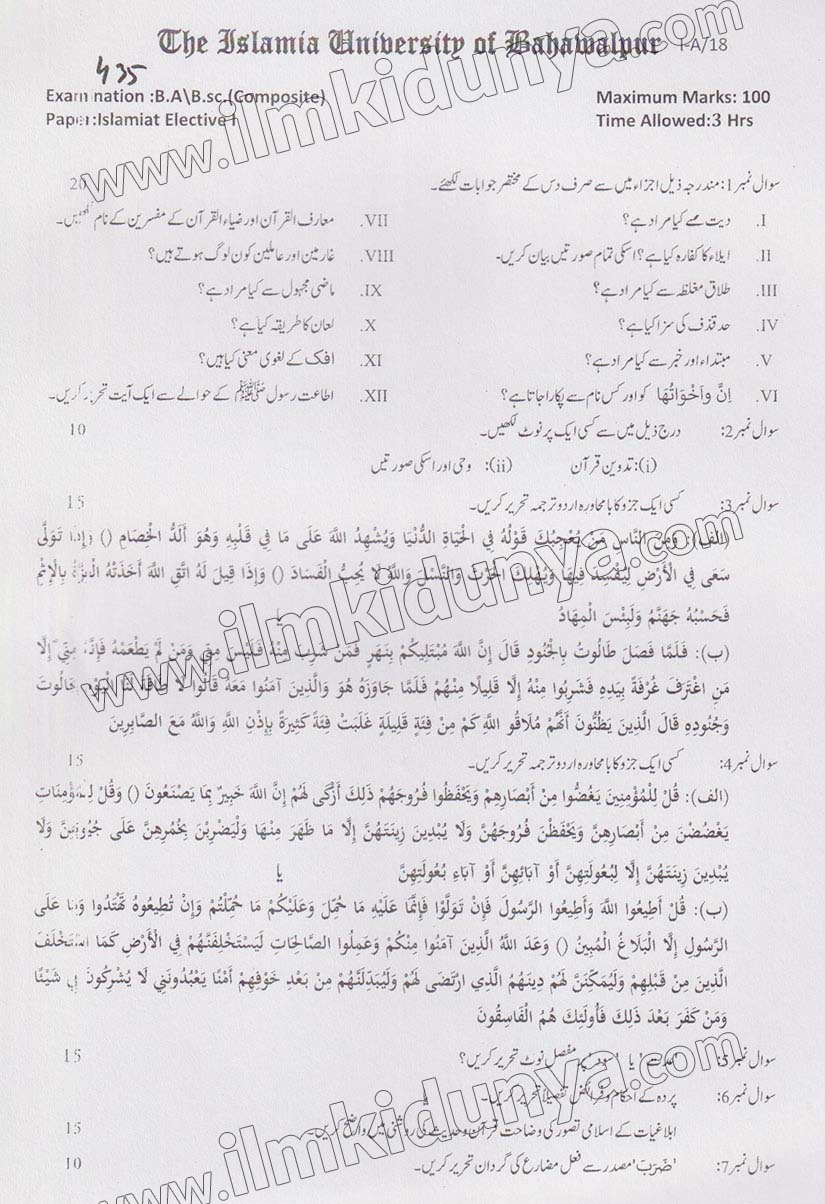 The Islamia University of Bahawalpur I-A/18
435
Examination :B.A\B.sc.(Composite) Maximum Marks: 100
Paper:Islamiat Elective I Time Allowed:3 Hrs
سوال نمبر 1: مندرجہ ذیل اجزاء میں سے صرف دس کے مختصر جوابات لکھئے۔ 20
I. دیت سے کیا مراد ہے؟ VII. معارف القرآن اور ضیاء القرآن کے مفسرین کے نام لکھیں۔
II. ایلاء کا کفارہ کیا ہے؟ اسکی تمام صورتیں بیان کریں۔ VIII. غارمین اور عاملین کون لوگ ہوتے ہیں؟
III. طلاق مغلظہ سے کیا مراد ہے؟ IX. ماضی مجہول سے کیا مراد ہے؟
IV. حد قذف کی سزا کیا ہے؟ X. لعان کا طریقہ کیا ہے؟
V. مبتداء اور خبر سے کیا مراد ہے؟ XI. افک کے لغوی معنی کیا ہیں؟
VI. اِنَّ وَاَخَوَاتُهَا کو اور کس نام سے پکارا جاتا ہے؟ XII. اطاعت رسول ﷺ کے حوالے سے ایک آیت تحریر کریں۔
سوال نمبر 2: درج ذیل میں سے کسی ایک پر نوٹ لکھیں۔ 10
(i): تدوین قرآن (ii): وحی اور اسکی صورتیں
سوال نمبر 3: کسی ایک جزو کا با محاورہ اردو ترجمہ تحریر کریں۔ 15
(الف): وَمِنَ النَّاسِ مَنْ يُعْجِبُكَ قَوْلُهُ فِي الْحَيَاةِ الدُّنْيَا وَيُشْهِدُ اللَّهَ عَلَى مَا فِي قَلْبِهِ وَهُوَ أَلَدُّ الْخِصَامِ () وَإِذَا تَوَلَّى
سَعَى فِي الْأَرْضِ لِيُفْسِدَ فِيهَا وَيُهْلِكَ الْحَرْثَ وَالنَّسْلَ وَاللَّهُ لَا يُحِبُّ الْفَسَادَ () وَإِذَا قِيلَ لَهُ اتَّقِ اللَّهَ أَخَذَتْهُ الْعِزَّةُ بِالْإِثْمِ
فَحَسْبُهُ جَهَنَّمُ وَلَبِئْسَ الْمِهَادُ یا
(ب): فَلَمَّا فَصَلَ طَالُوتُ بِالْجُنُودِ قَالَ إِنَّ اللَّهَ مُبْتَلِيكُمْ بِنَهَرٍ فَمَنْ شَرِبَ مِنْهُ فَلَيْسَ مِنِّي وَمَنْ لَمْ يَطْعَمْهُ فَإِنَّهُ مِنِّي إِلَّا
مَنِ اغْتَرَفَ غُرْفَةً بِيَدِهِ فَشَرِبُوا مِنْهُ إِلَّا قَلِيلًا مِنْهُمْ فَلَمَّا جَاوَزَهُ هُوَ وَالَّذِينَ آمَنُوا مَعَهُ قَالُوا لَا طَاقَةَ لَنَا الْيَوْمَ بِجَالُوتَ
وَجُنُودِهِ قَالَ الَّذِينَ يَظُنُّونَ أَنَّهُمْ مُلَاقُو اللَّهِ كَمْ مِنْ فِئَةٍ قَلِيلَةٍ غَلَبَتْ فِئَةً كَثِيرَةً بِإِذْنِ اللَّهِ وَاللَّهُ مَعَ الصَّابِرِينَ
سوال نمبر 4: کسی ایک جزو کا با محاورہ اردو ترجمہ تحریر کریں۔ 15
(الف): قُلْ لِلْمُؤْمِنِينَ يَغُضُّوا مِنْ أَبْصَارِهِمْ وَيَحْفَظُوا فُرُوجَهُمْ ذَلِكَ أَزْكَى لَهُمْ إِنَّ اللَّهَ خَبِيرٌ بِمَا يَصْنَعُونَ () وَقُلْ لِلْمُؤْمِنَاتِ
يَغْضُضْنَ مِنْ أَبْصَارِهِنَّ وَيَحْفَظْنَ فُرُوجَهُنَّ وَلَا يُبْدِينَ زِينَتَهُنَّ إِلَّا مَا ظَهَرَ مِنْهَا وَلْيَضْرِبْنَ بِخُمُرِهِنَّ عَلَى جُيُوبِهِنَّ وَلَا
يُبْدِينَ زِينَتَهُنَّ إِلَّا لِبُعُولَتِهِنَّ أَوْ آبَائِهِنَّ أَوْ آبَاءِ بُعُولَتِهِنَّ یا
(ب): قُلْ أَطِيعُوا اللَّهَ وَأَطِيعُوا الرَّسُولَ فَإِنْ تَوَلَّوْا فَإِنَّمَا عَلَيْهِ مَا حُمِّلَ وَعَلَيْكُمْ مَا حُمِّلْتُمْ وَإِنْ تُطِيعُوهُ تَهْتَدُوا وَمَا عَلَى
الرَّسُولِ إِلَّا الْبَلَاغُ الْمُبِينُ () وَعَدَ اللَّهُ الَّذِينَ آمَنُوا مِنْكُمْ وَعَمِلُوا الصَّالِحَاتِ لَيَسْتَخْلِفَنَّهُمْ فِي الْأَرْضِ كَمَا اسْتَخْلَفَ
الَّذِينَ مِنْ قَبْلِهِمْ وَلَيُمَكِّنَنَّ لَهُمْ دِينَهُمُ الَّذِي ارْتَضَى لَهُمْ وَلَيُبَدِّلَنَّهُمْ مِنْ بَعْدِ خَوْفِهِمْ أَمْنًا يَعْبُدُونَنِي لَا يُشْرِكُونَ بِي شَيْئًا
وَمَنْ كَفَرَ بَعْدَ ذَلِكَ فَأُولَئِكَ هُمُ الْفَاسِقُونَ
سوال نمبر 5: 'عدت' یا 'سود' پر مفصل نوٹ تحریر کریں؟ 15
سوال نمبر 6: پردہ کے احکام و فرائض تفصیلاً تحریر کریں۔ یا
ابلاغیات کے اسلامی تصور کی وضاحت قرآن و حدیث کی روشنی میں واضح کریں۔ 15
سوال نمبر 7: 'ضَرَبَ' مصدر سے فعل مضارع کی گردان تحریر کریں۔ 10
www.ilmkidunya.com
www.ilmkidunya.com
www.ilmkidunya.com
www.ilmkidunya.com